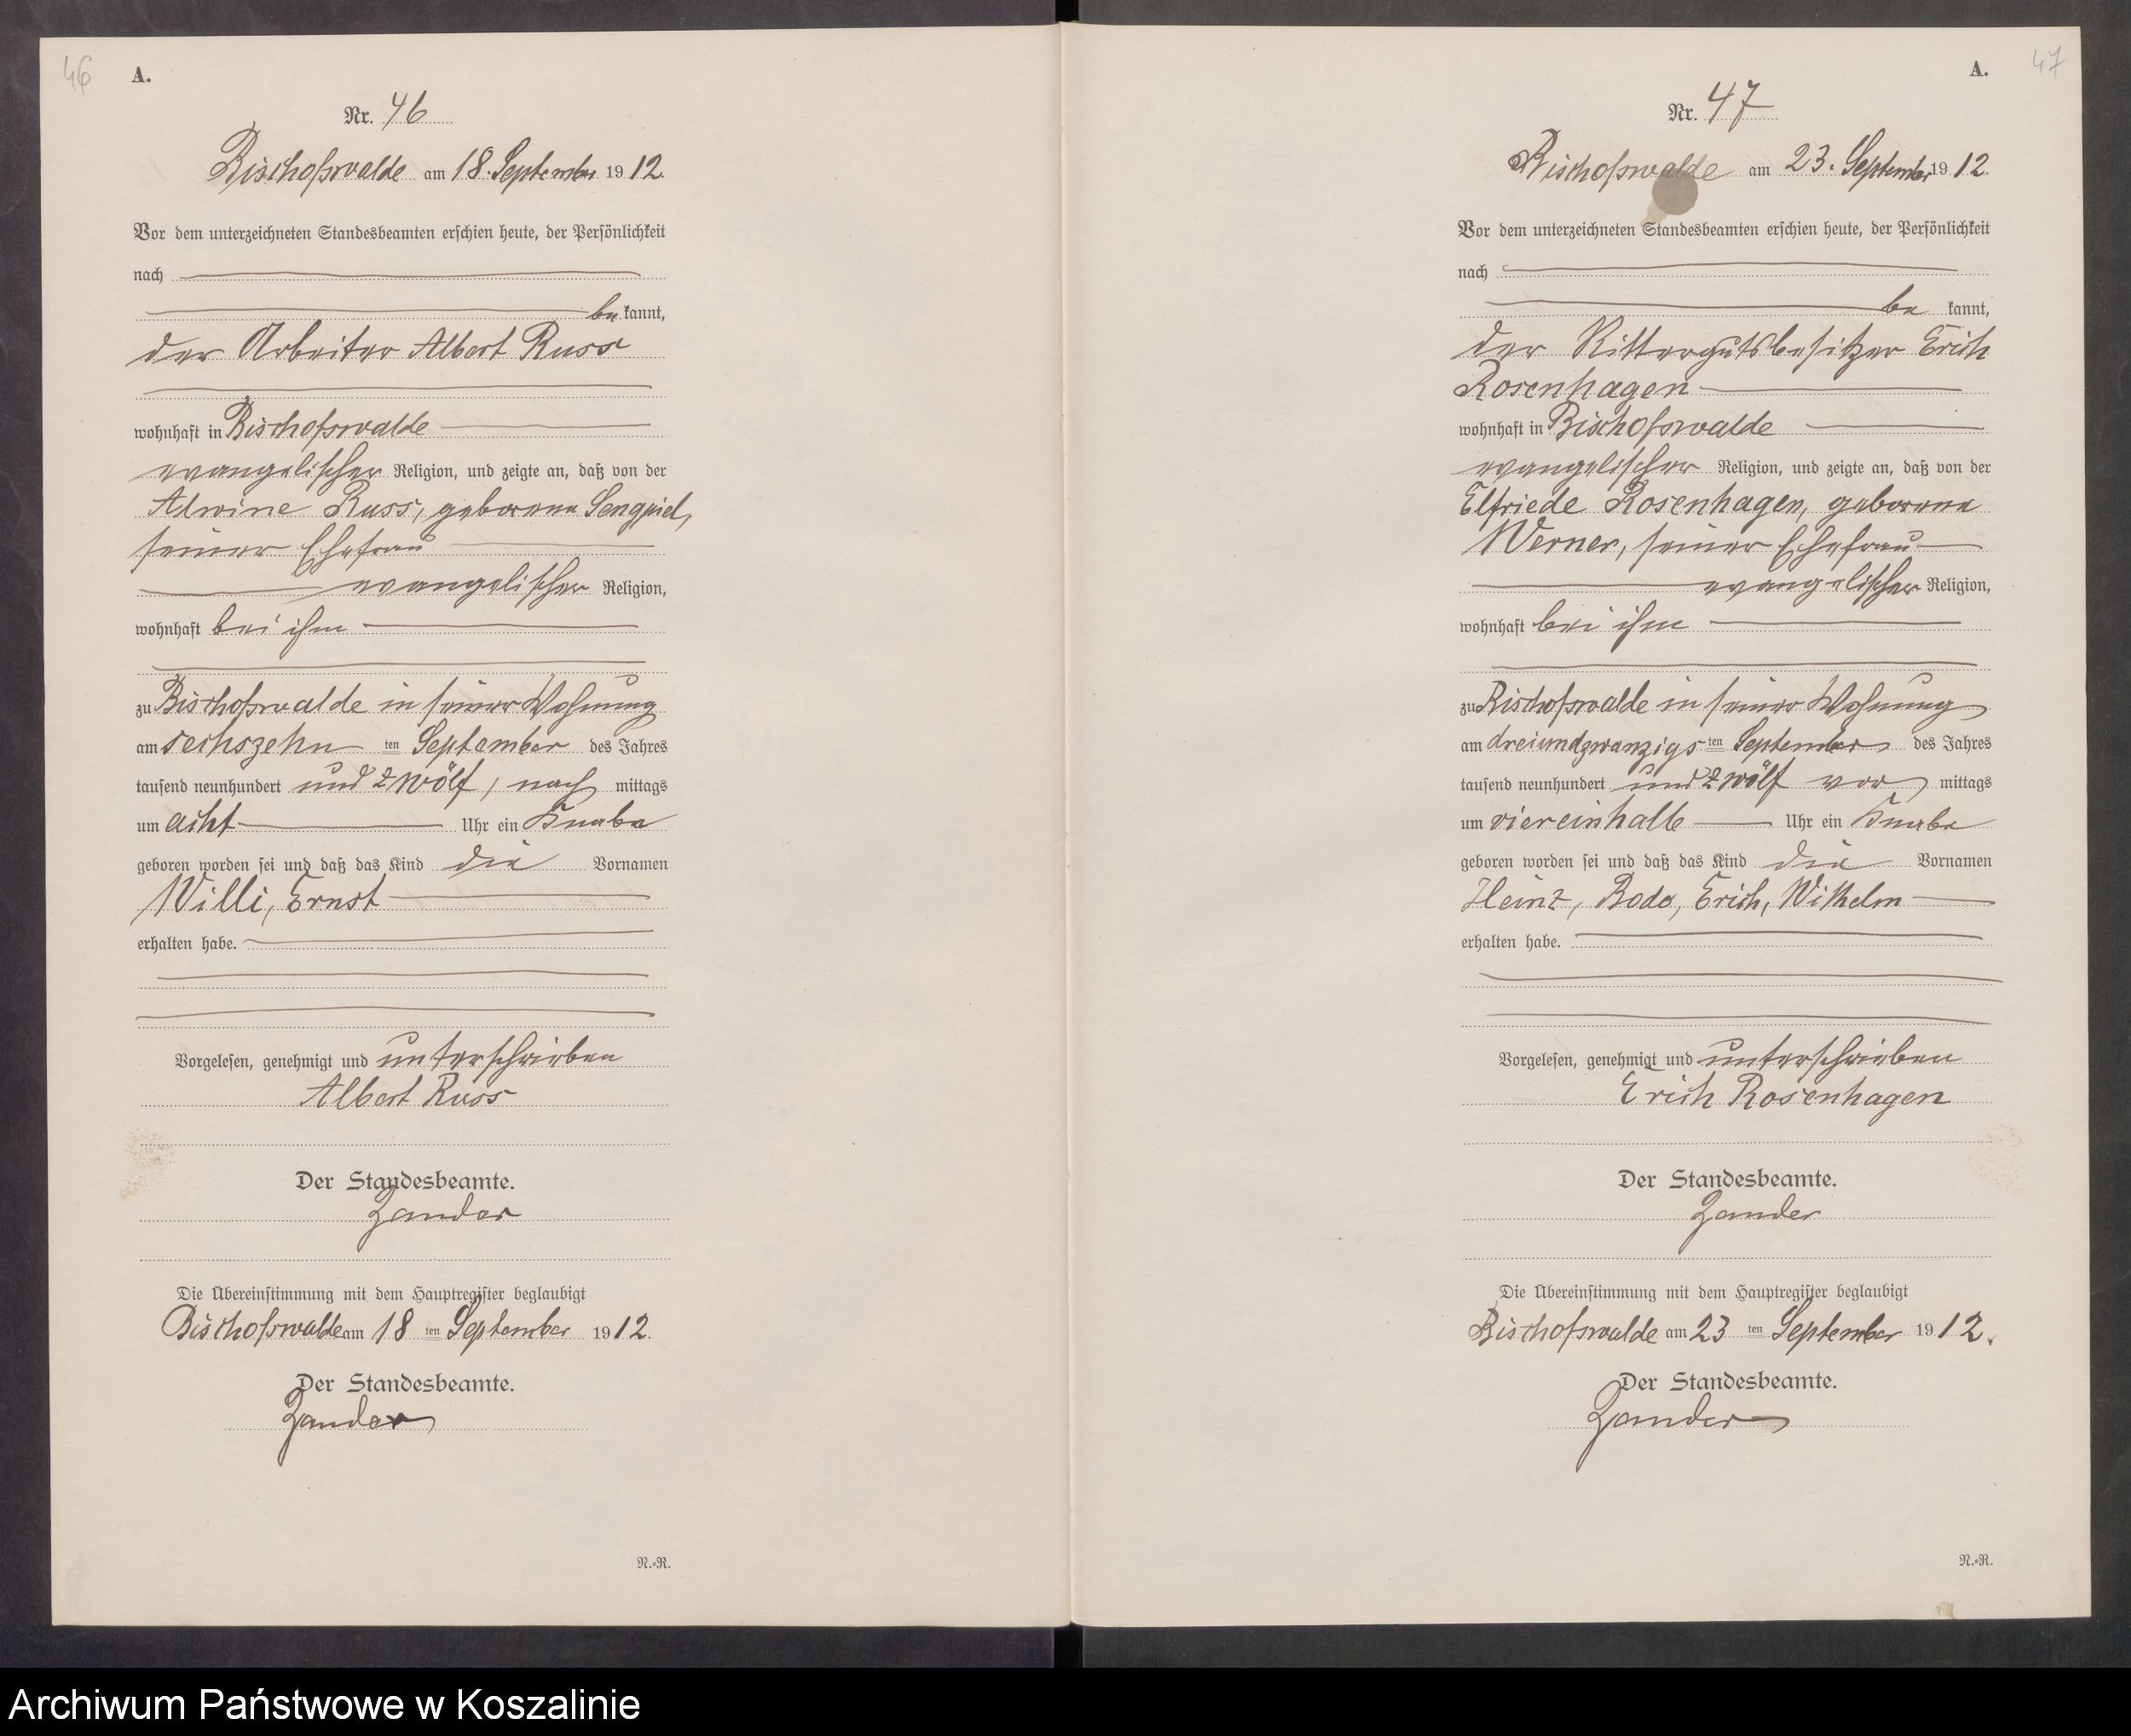 46
A.
Nr. 46
Bischofswalde am 18. September 1912.
Vor dem unterzeichneten Standesbeamten erschien heute, der Persönlichkeit
nach
bekannt,
der Arbeiter Albert Russ
wohnhaft in Bischofswalde
evangelischer Religion, und zeigte an, daß von der
Alwine Russ, geborene
seiner Ehefrau
evangelischer Religion,
wohnhaft bei ihm
zu Bischofswalde in seiner Wohnung
am sechszehn ten September des Jahres
tausend neunhundert und zwölf, nach mittags
um acht Uhr ein Knabe
geboren worden sei und daß das Kind die Vornamen
Willi, Ernst
erhalten habe.
Vorgelesen, genehmigt und unterschrieben
Albert Russ
Der Standesbeamte.
Zander
Die Übereinstimmung mit dem Hauptregister beglaubigt
Bischofswalde am 18 ten September 1912.
Der Standesbeamte.
Zander
N.-R.
47
A.
Nr. 47
Bischofswalde am 23. September 1912.
Vor dem unterzeichneten Standesbeamten erschien heute, der Persönlichkeit
nach
be kannt,
der Rittergutsbesitzer Erich
Rosenhagen
wohnhaft in Bischofswalde
evangelischer Religion, und zeigte an, daß von der
Elfriede Rosenhagen, geborene
Werner, seiner Ehefrau
evangelischer Religion,
wohnhaft bei ihm
zu Bischofswalde in seiner Wohnung
am dreiundzwanzigs ten September des Jahres
tausend neunhundert und zwölf vor mittags
um viereinhalb Uhr ein Knabe
geboren worden sei und daß das Kind die Vornamen
Heinz, Bodo, Erich, Wilhelm
erhalten habe.
Vorgelesen, genehmigt und unterschrieben
Erich Rosenhagen
Der Standesbeamte.
Zander
Die Übereinstimmung mit dem Hauptregister beglaubigt
Bischofswalde am 23 ten September 1912.
Der Standesbeamte.
Zander
N.-R.
Archiwum Państwowe w Koszalinie